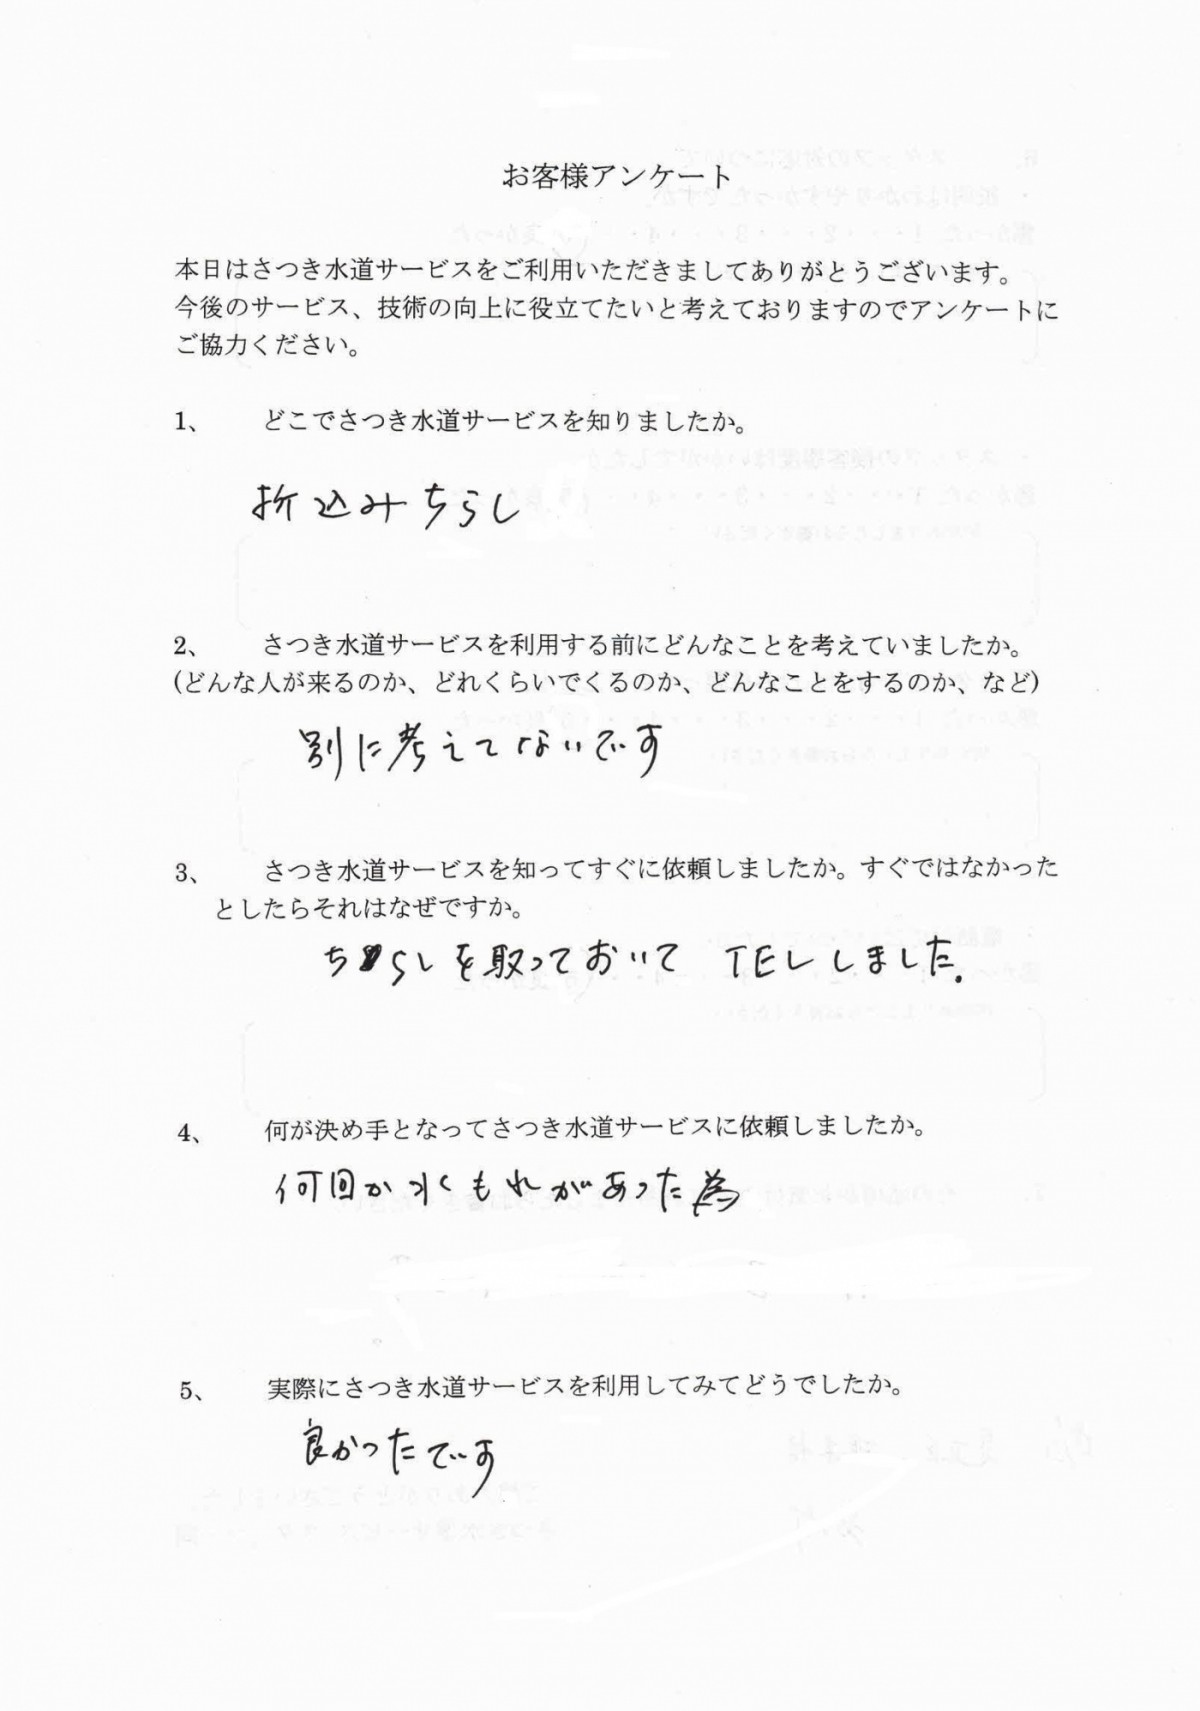 お客様アンケート
本日はさつき水道サービスをご利用いただきましてありがとうございます。
今後のサービス、技術の向上に役立てたいと考えておりますのでアンケートに
ご協力ください。
1、 どこでさつき水道サービスを知りましたか。
折込みちらし
2、 さつき水道サービスを利用する前にどんなことを考えていましたか。
(どんな人が来るのか、どれくらいでくるのか、どんなことをするのか、など)
別に考えてないです
3、 さつき水道サービスを知ってすぐに依頼しましたか。すぐではなかった
としたらそれはなぜですか。
ちらしを取っておいて TELしました.
4、 何が決め手となってさつき水道サービスに依頼しましたか。
何回か水もれがあった為
5、 実際にさつき水道サービスを利用してみてどうでしたか。
良かったです